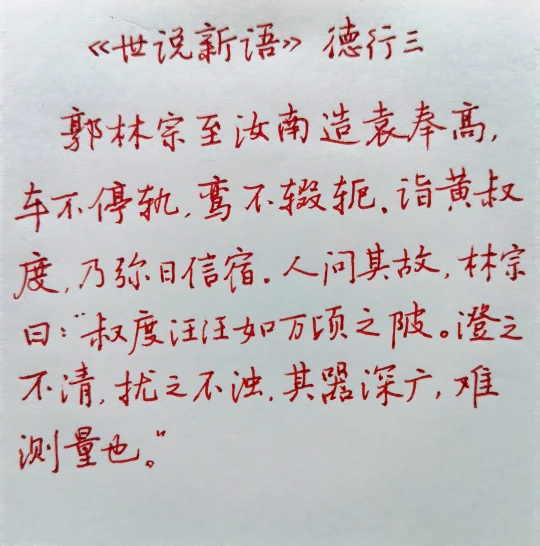 《世说新语》德行三
郭林宗至汝南造袁奉高,
车不停轨,鸾不辍轭。诣黄叔
度,乃弥日信宿。人问其故,林宗
曰:“叔度汪汪如万顷之陂。澄之
不清,扰之不浊,其器深广,难
测量也。”